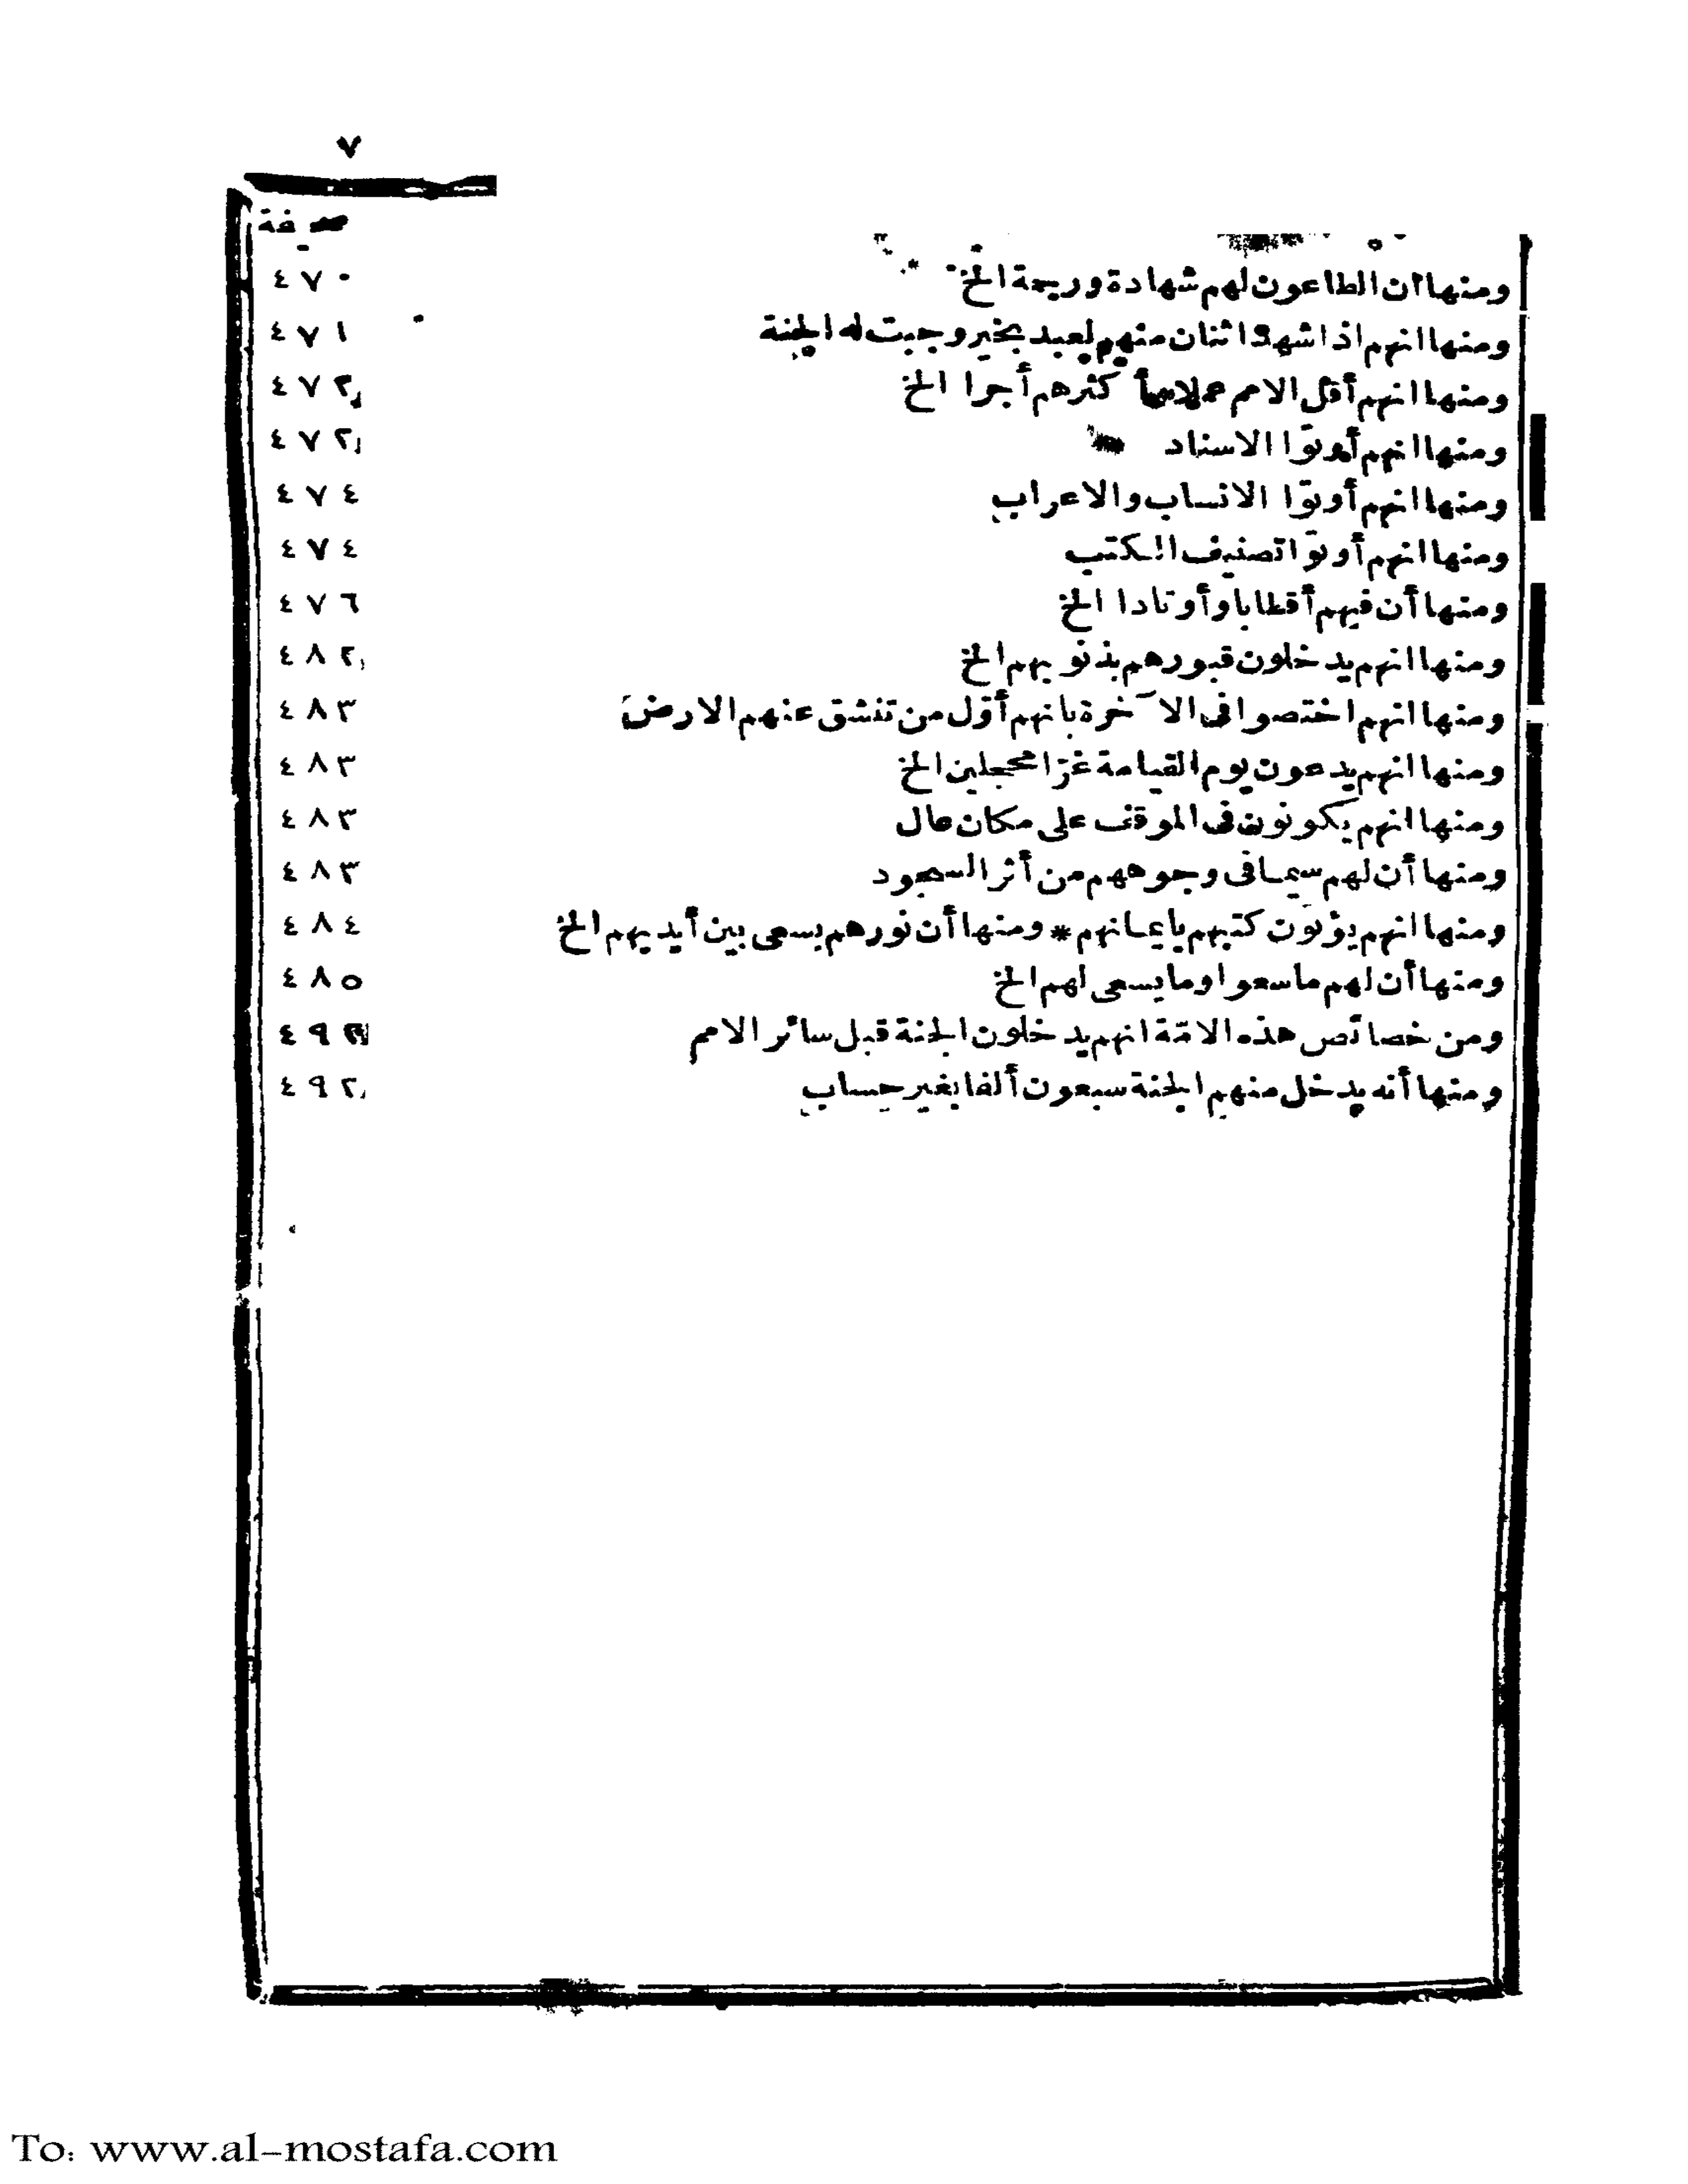 ٧
صحيفة
ومنها ان الطاعون لهم شهادة ورحمة الخ ٤٧٠
ومنها انهم اذا شهد اثنان منهم لعبد بخير وجبت له الجنة ٤٧١
ومنها انهم أقل الامم عملا وأكثرهم أجرا الخ ٤٧٢
ومنها انهم أوتوا الاسناد ٤٧٢
ومنها انهم أوتوا الانساب والاعراب ٤٧٤
ومنها انهم أوتوا تصنيف الكتب ٤٧٤
ومنها أن فيهم أقطابا وأوتادا الخ ٤٧٦
ومنها انهم يدخلون قبورهم بذنوبهم الخ ٤٨٢
ومنها انهم اختصوا فى الآخرة بانهم أوّل من تنشق عنهم الارض ٤٨٣
ومنها انهم يدعون يوم القيامة غرّا محجلين الخ ٤٨٣
ومنها انهم يكونون فى الموقف على مكان عال ٤٨٣
ومنها أن لهم سيما فى وجوههم من أثر السجود ٤٨٣
ومنها انهم يؤتون كتبهم بايمانهم * ومنها أن نورهم يسعى بين أيديهم الخ ٤٨٤
ومنها أن لهم ما سعوا وما يسعى لهم الخ ٤٨٥
ومن خصائص هذه الامّة انهم يدخلون الجنة قبل سائر الامم ٤٩٢
ومنها أنه يدخل منهم الجنة سبعون ألفا بغير حساب ٤٩٢
To: www.al-mostafa.com